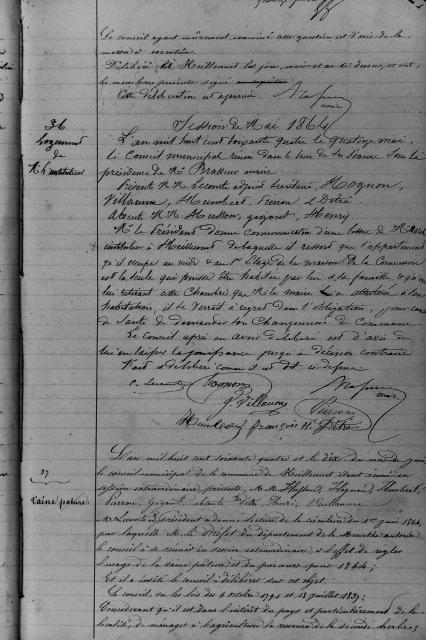 Le conseil ayant mûrement examiné cette question est d'avis de la
mettre à exécution.
Délibéré à Meillecourt les jour, mois et an ci dessus, et ont
les membres présents signé
Cette délibération est ajournée
maire
36
Logement
de
l'instituteur
Session de Mai 1864
L'an mil huit cent soixante quatre le quatorze mai,
le Conseil municipal réuni dans le lieu de ses séances sous la
présidence de Mr Brasseur maire
Présents M.M. Lecomte adjoint secrétaire, Hognon,
Villaume, Humbert, Pierron & Détré
Absents M.M. Husson, Henry
Mr le Président donne communication d'une lettre de Mr
instituteur à de laquelle il ressort que l'appartement
qu'il occupe au midi & au 1er étage de la maison de la Commune
est la seule qui puisse être habitée par lui & sa famille & qu'en
lui retirant cette Chambre que Mr le maire a attribuée à son
habitation, il se verrait à regret dans l'obligation, pour cause
de santé de demander son Changement de Commune.
Le conseil après en avoir délibéré est d'avis de
lui en laisser la jouissance jusqu'à décision contraire
Fait & délibéré comme il est dit ci dessus
Hognon
maire
Villaume
Pierron
Humbert François Détré
37
Vaine pâture
L'an mil huit cent soixante quatre et le dix du mois de juin
le conseil municipal de la commune de étant réuni en
session extraordinaire, présents, M.M. Husson, Hognon, Humbert,
Pierron, Détré, Villaume
Mr Lecomte Président a donné lecture de la circulaire du 1er juin 1864,
par laquelle M. le Préfet du département de la Meurthe autorise
le conseil à se réunir en session extraordinaire, à l'effet de régler
l'usage de la vaine pâture et du parcours pour 1864;
Et il a invité le conseil à délibérer sur cet objet.
Le conseil vu les lois du 6 octobre 1791 et 18 juillet 1837;
Considérant qu'il est dans l'intérêt du pays et particulièrement de la
localité, de ménager à l'agriculture la ressource de la seconde herbe;